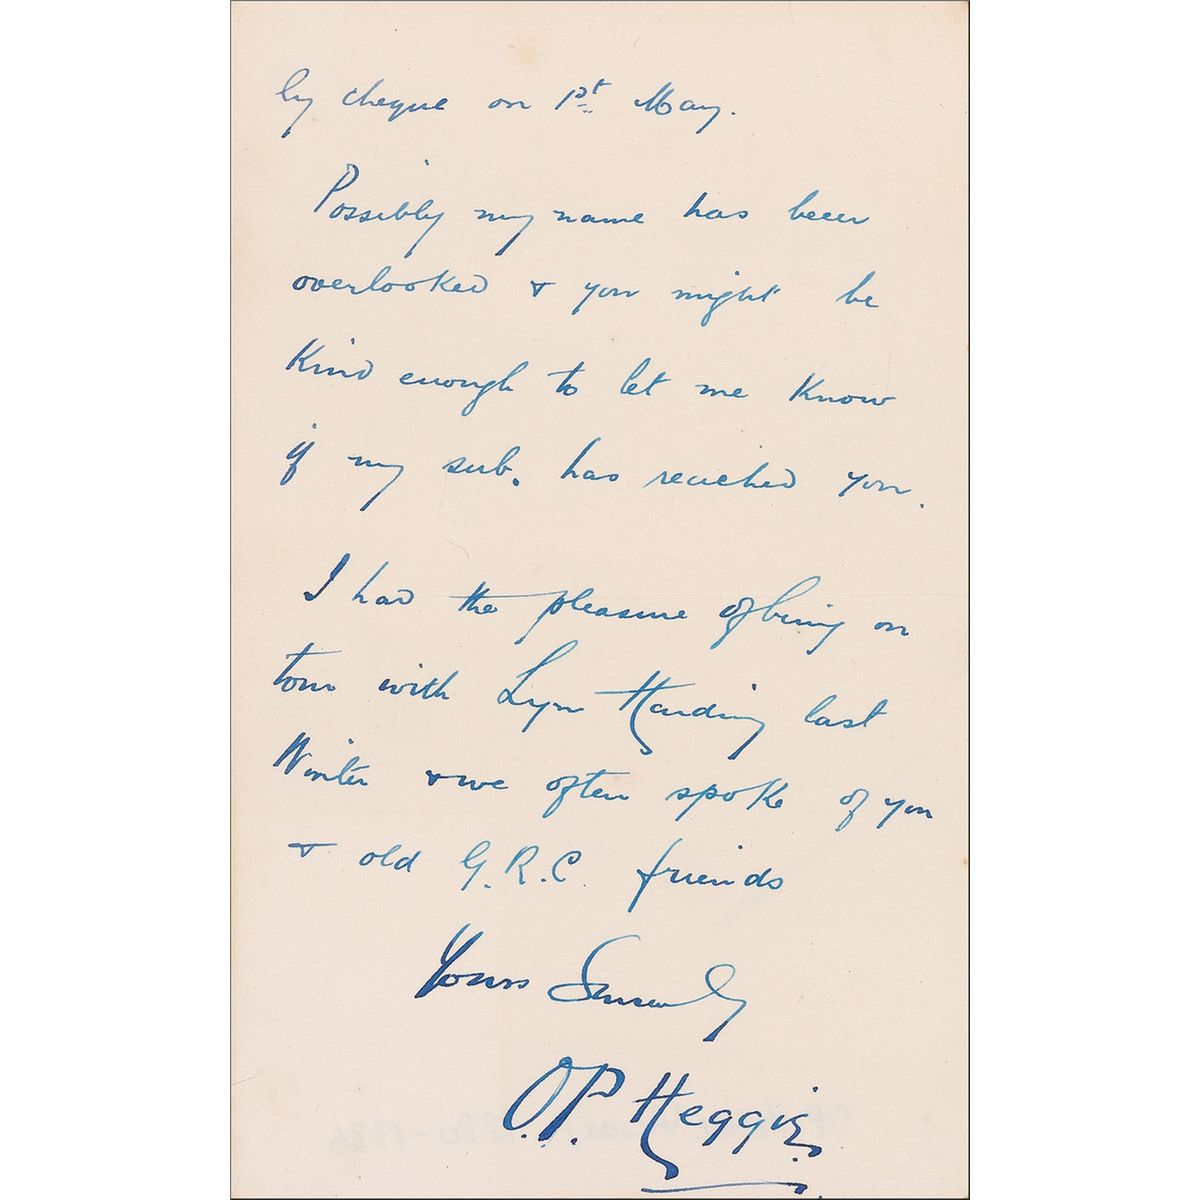 by cheque on 1st May.
Possibly my name has been
overlooked & you might be
kind enough to let me know
if my sub. has reached you.
I had the pleasure of being on
tour with Lyn Harding last
Winter & we often spoke of you
& old G.R.C. friends
Yours Sincerely
O.P. Heggie